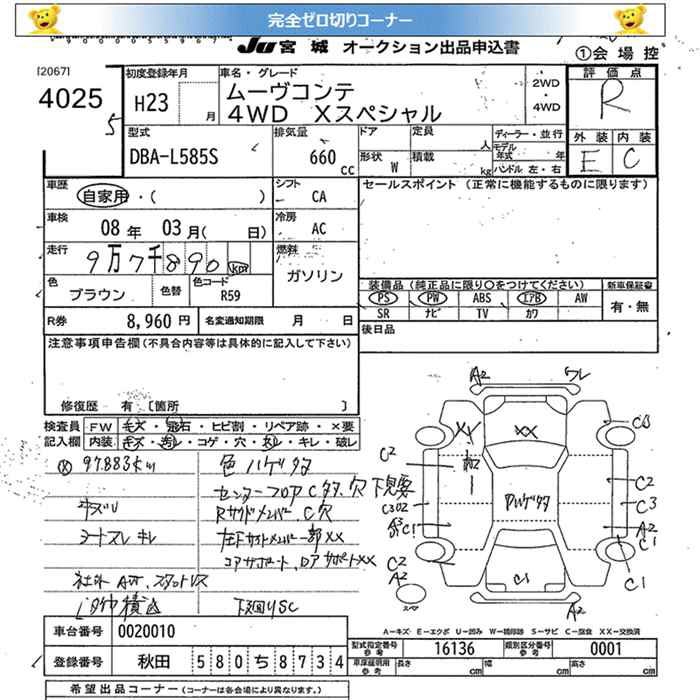 完全ゼロ切りコーナー
JU 宮城 オークション出品申込書
①会場控
[2067]
4025
5
初度登録年月
H23
月
車名・グレード
ムーヴコンテ
4WD Xスペシャル
2WD
・
4WD
評価点
R
外装 内装
E C
型式
DBA-L585S
排気量
660
cc
ドア
形状 W
定員 人
積載 kg
ディーラー・並行
モデル年式 年
ハンドル 左・右
車歴
自家用・( )
シフト
CA
セールスポイント (正常に機能するものに限ります)
車検
08年 03月( 日)
冷房
AC
走行
9万7千890 km
燃料
ガソリン
色
ブラウン
色替
色コード
R59
装備品(純正品に限り○をつけてください)
新車保証書
PS PW ABS エアB AW
SR ナビ TV カワ
有・無
R券
8,960円
名変通知期限 月 日
後日品
注意事項申告欄(不具合内容等は具体的に記入して下さい)
修復歴 有 [箇所 ]
検査員
記入欄
FW キズ・飛石・ヒビ割・リペア跡・×要
内装 キズ・コゲ・穴・キレ・破レ
97.883km
色ハゲタ
センターフロアCタ、穴 下見要
キズ
Rサイドメンバー、C穴
シートスレ キレ
左下サイドメンバー一部XX
コアサポート、ロアサポートXX
下廻りSC
A2
XX
C2
A2
C3
C1
C2
C1
A2
車台番号
0020010
登録番号
秋田 580ち8734
A−キズ E−エクボ U−凹み W−補修跡 S−サビ C−腐食 XX−交換済
型式指定番号
参考
16136
類別区分番号
参考
0001
車庫証明用
参考
長さ 幅 高さ
希望出品コーナー(コーナーは各会場により異なります。)